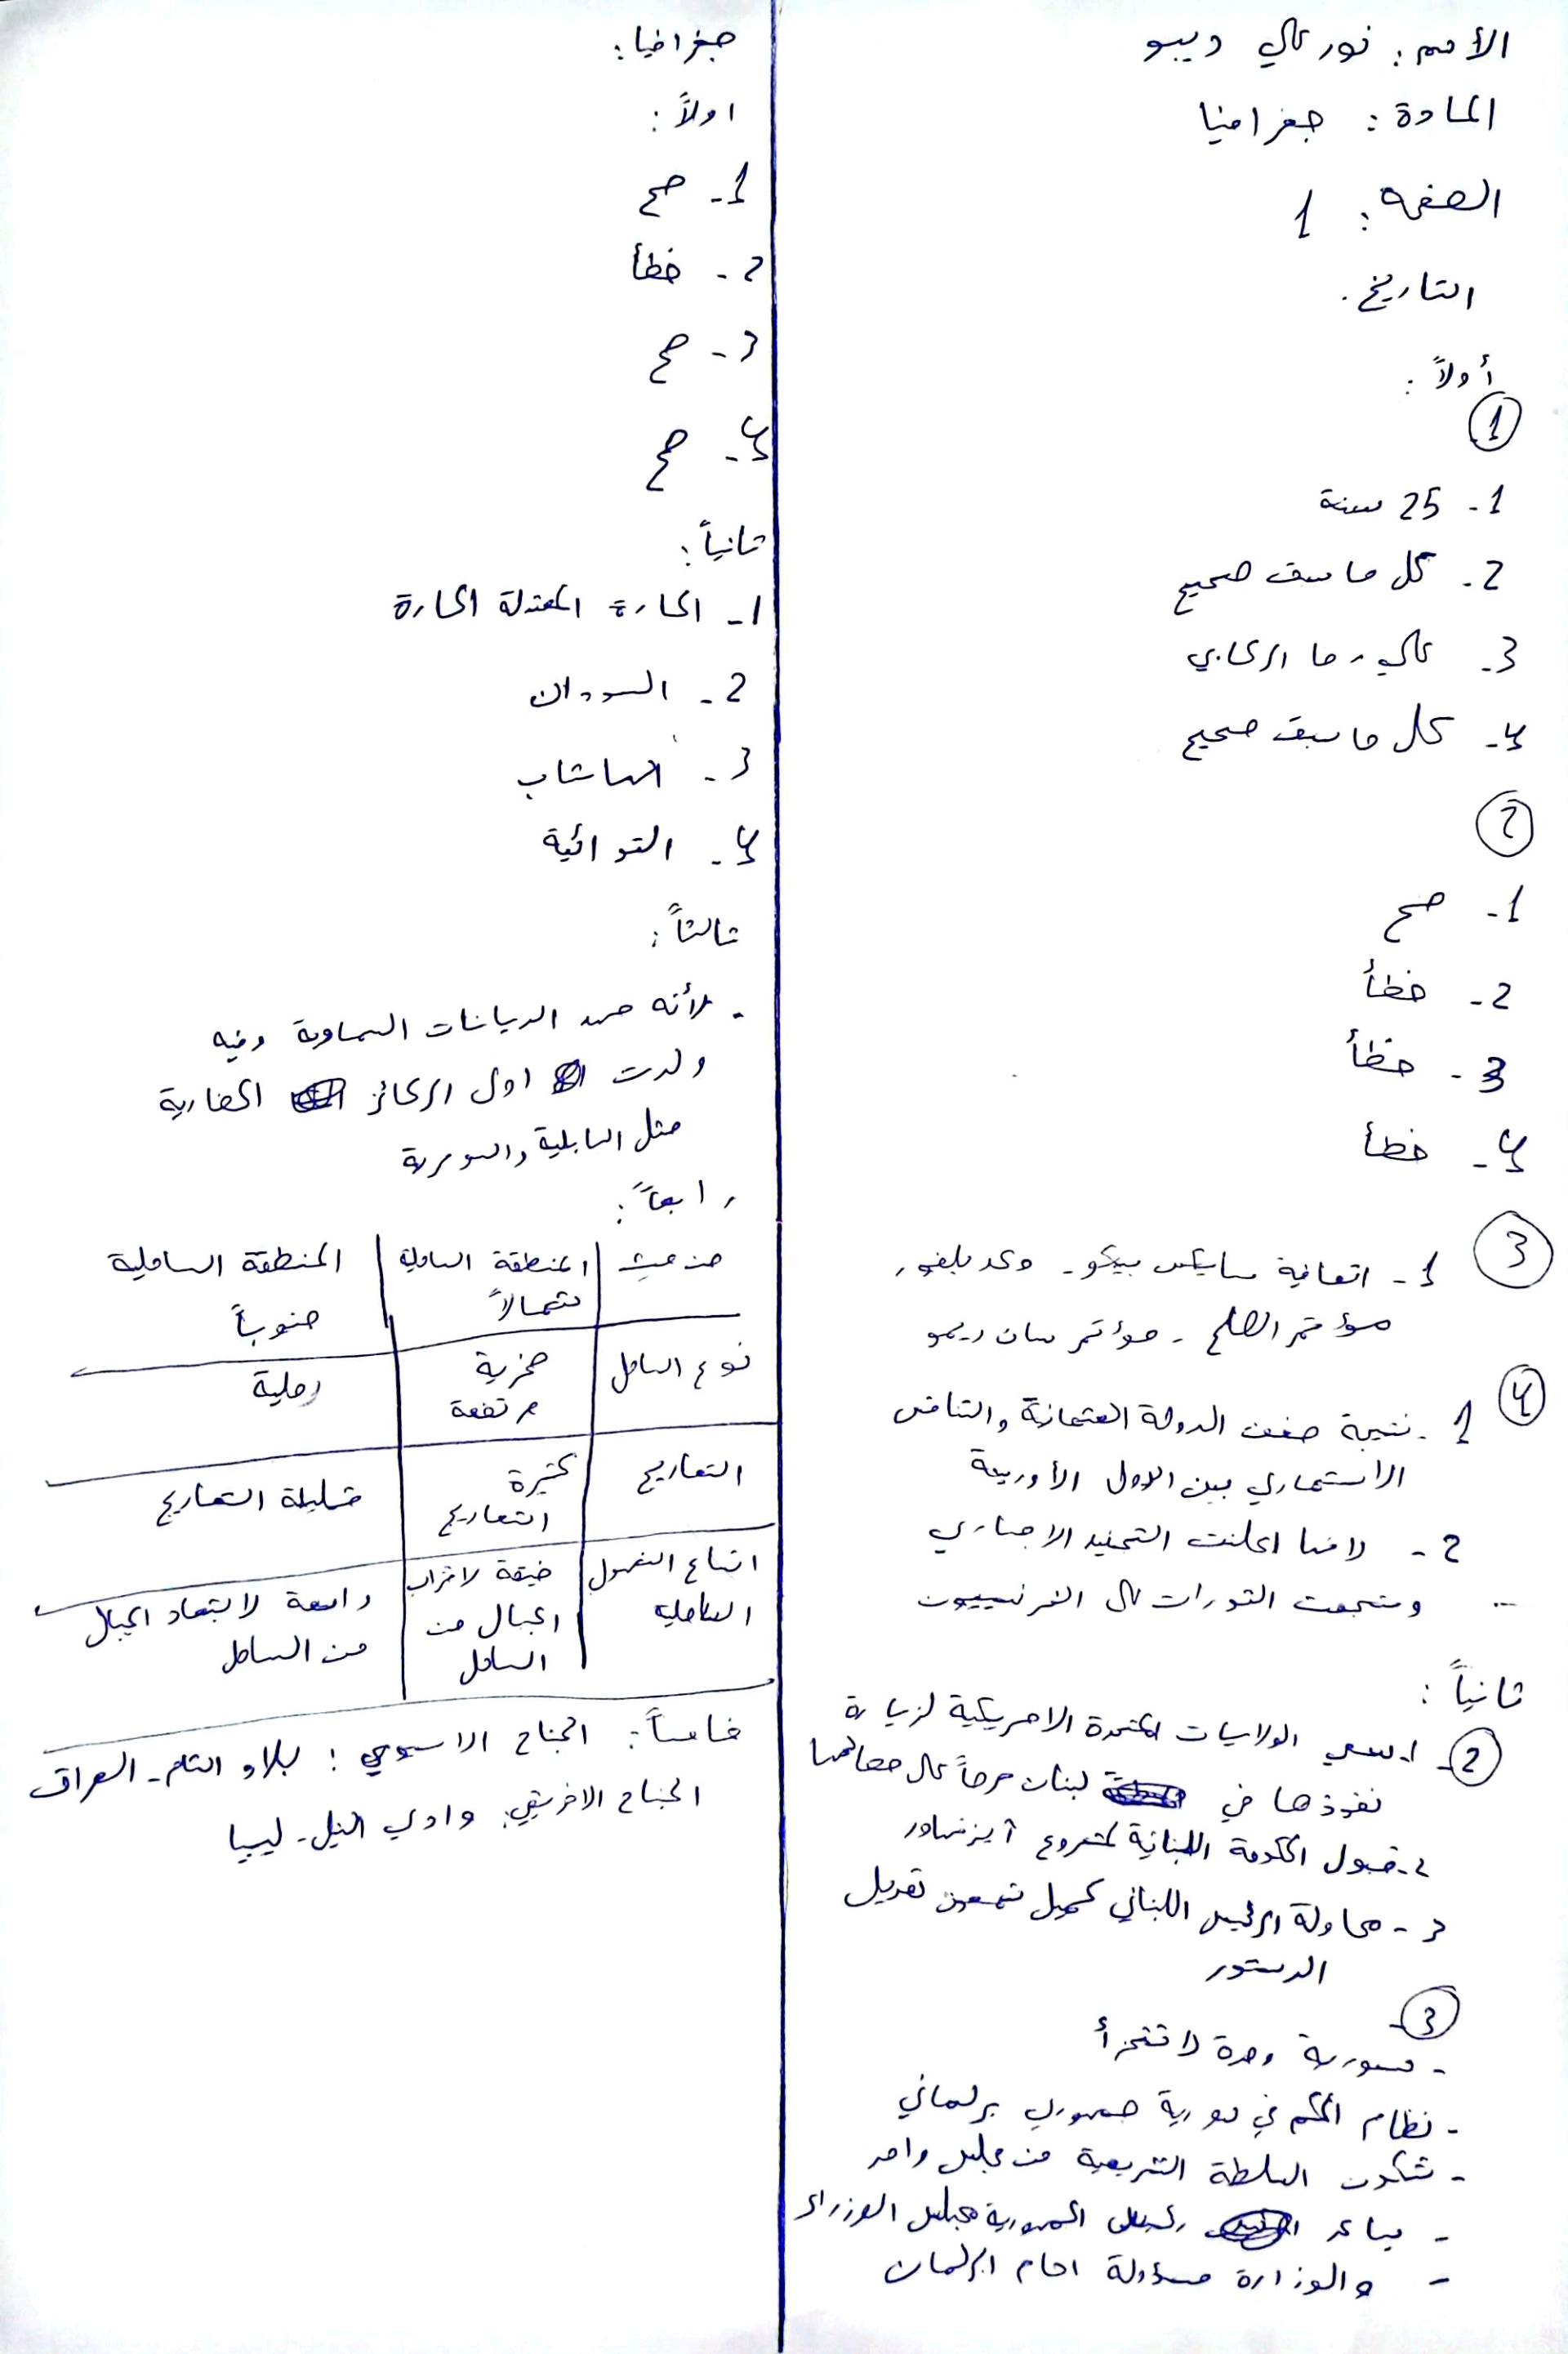 الأسم: نور علي ديبو
المادة: جغرافيا
الصفحة: 1
التاريخ.
أولاً:
1
1- 25 سنة
2- كل ما سبق صحيح
3- علي رضا الركابي
4- كل ما سبق صحيح
2
1- صح
2- خطأ
3- خطأ
4- خطأ
3
1- اتفاقية سايكس بيكو - وعد بلفور
مؤتمر الصلح - مؤتمر سان ريمو
4
1- نتيجة ضعف الدولة العثمانية والتنافس
الاستعماري بين الدول الأوربية
2- لانها اعلنت التجنيد الاجباري
... وشجعت الثورات على الفرنسييون
ثانياً:
2- 1- سعي الولايات المتحدة الامريكية لزيارة
نفوذها في لبنان حرصاً على مصالحها
2- قبول الحكومة اللبنانية لمشروع آيزنهاور
3- محاولة الرئيس اللبناني كميل شمعون تعديل
الدستور
3-
- سورية وحدة لا تتجزأ
- نظام الحكم في سورية جمهوري برلماني
- تتكون السلطة التشريعية من مجلس واحد
- يساعد رئيس الجمهورية مجلس الوزراء
- والوزارة مسؤولة امام البرلمان
جغرافيا:
اولاً:
1- صح
2- خطأ
3- صح
4- صح
ثانياً:
1- الحارة المعتدلة الحارة
2- السودان
3- الهاشاب
4- التوائية
ثالثاً:
- لأنه مهد الديانات السماوية وفيه
ولدت اول الركائز الحضارية
مثل البابلية والسومرية
رابعاً:
من حيث | المنطقة الساحلية شمالاً | المنطقة الساحلية جنوباً
نوع الساحل | صخرية مرتفعة | رملية
التعاريج | كثيرة التعاريج | قليلة التعاريج
اتساع السهول الساحلية | ضيقة لاقتراب الجبال من الساحل | واسعة لابتعاد الجبال من الساحل
خامساً: الجناح الاسيوي: بلاد الشام - العراق
الجناح الافريقي: وادي النيل - ليبيا